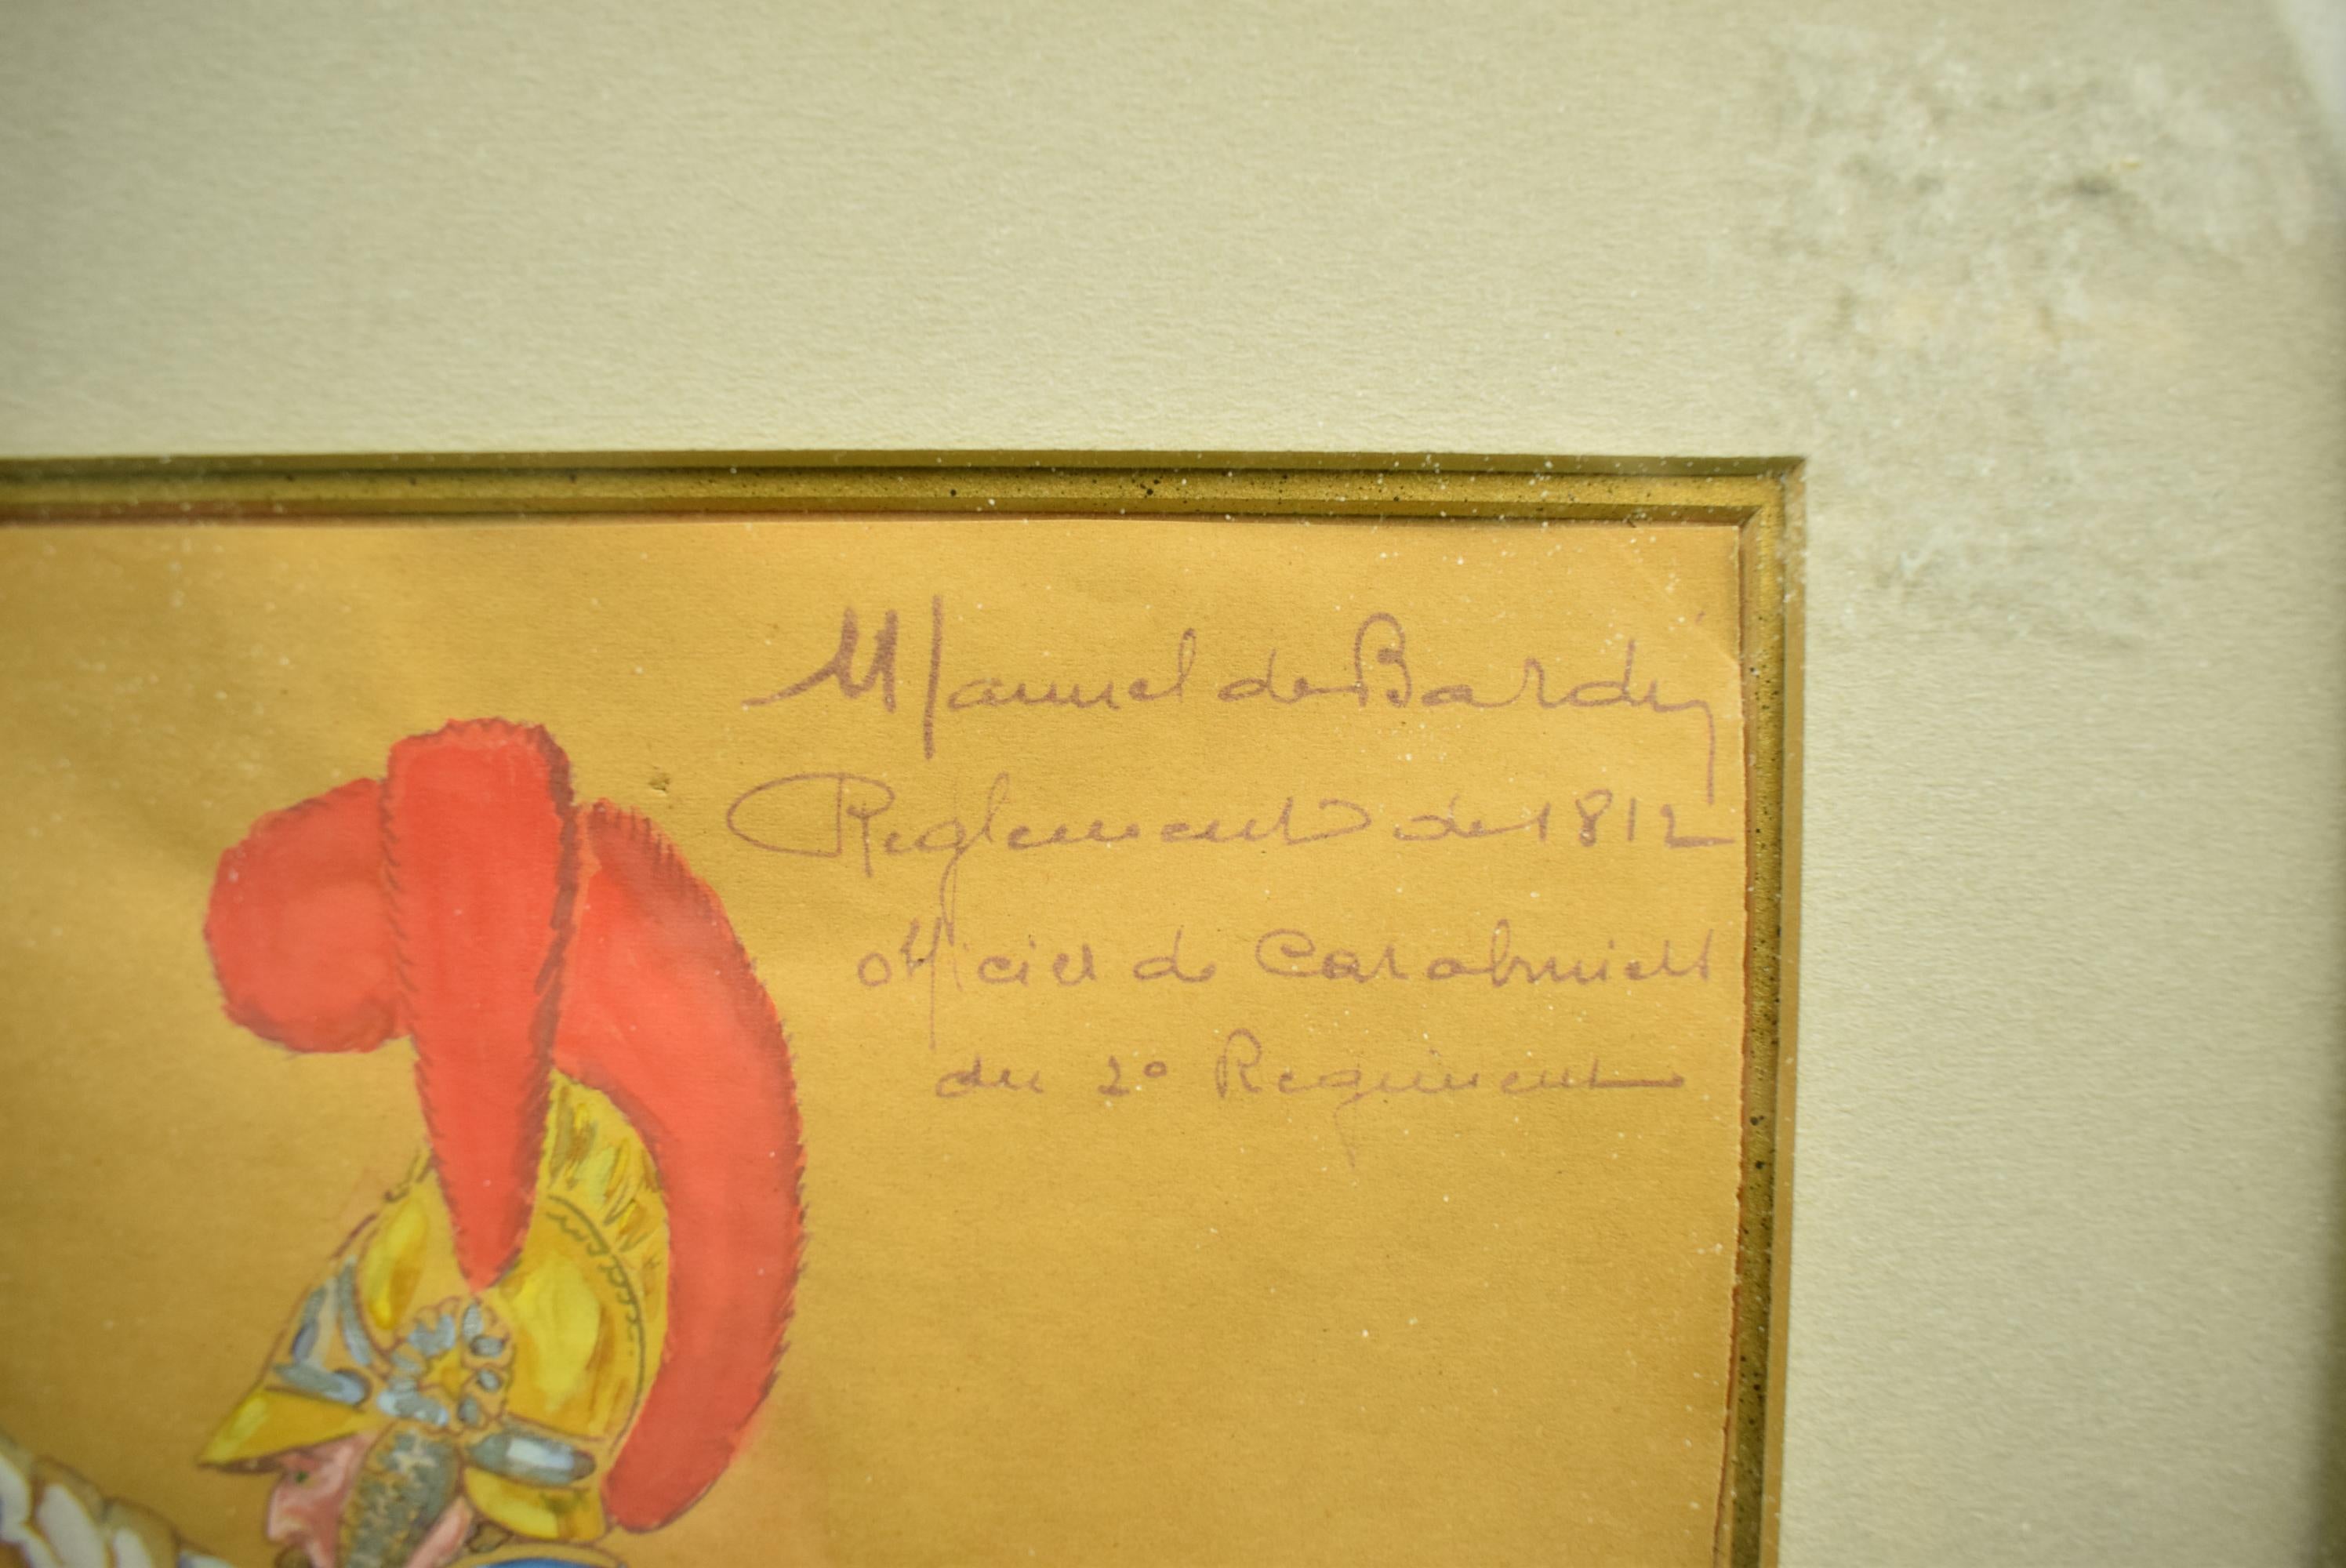 Manuel de Bardin
Reglement de 1812
officier de Carabiniers
du 2º Regiment